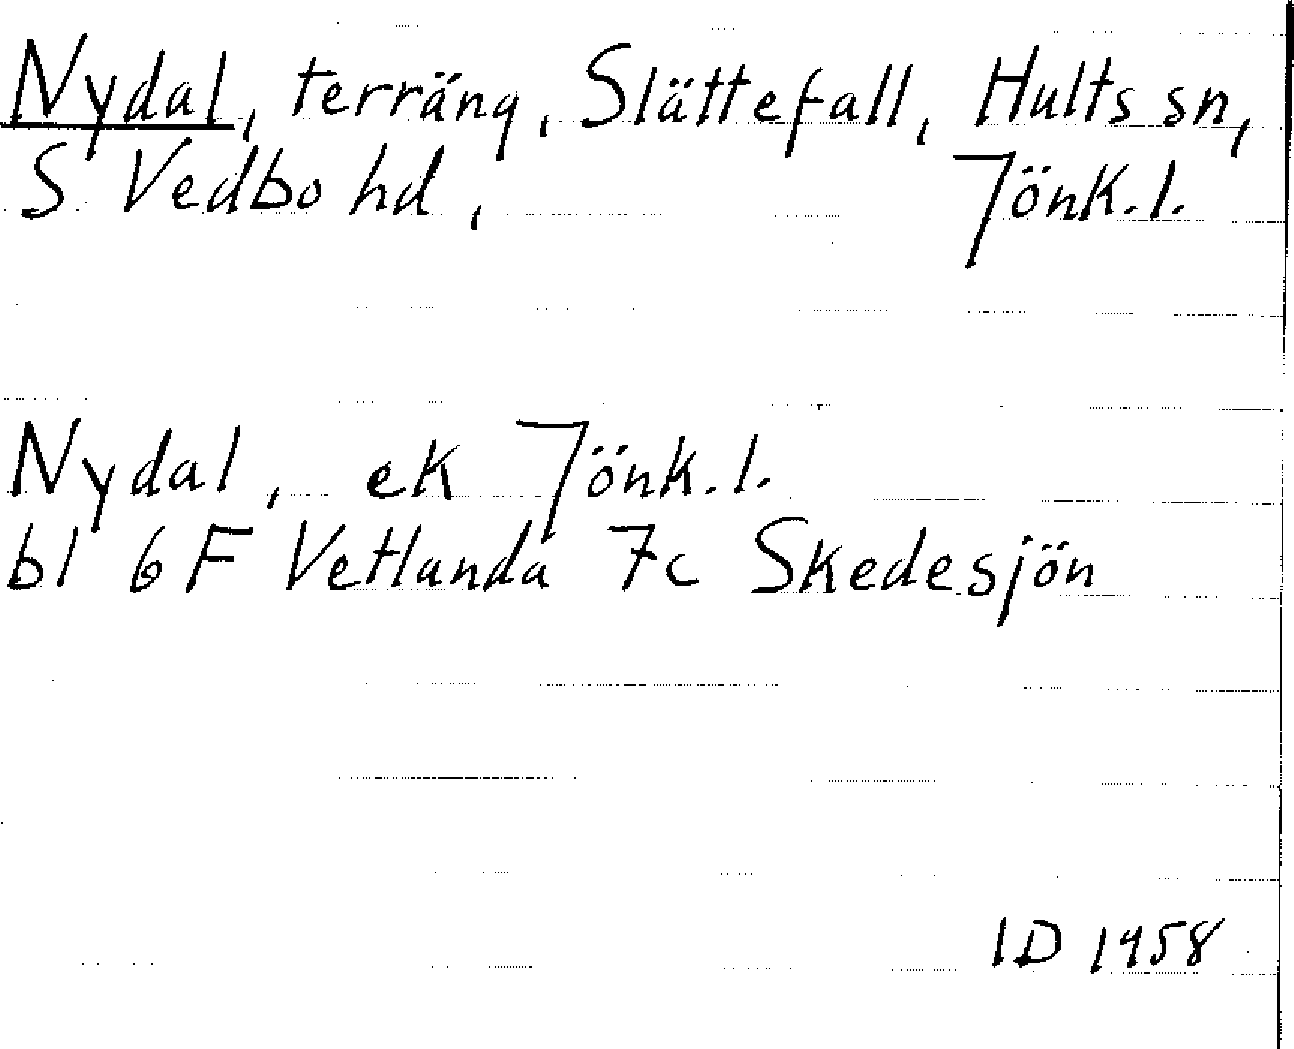 Nydal, terräng, Slättefall, Hults sn,
S Vedbo hd, Jönk.l.
Nydal, ek Jönk.l.
bl 6F Vetlanda 7c Skedesjön
ID 1958